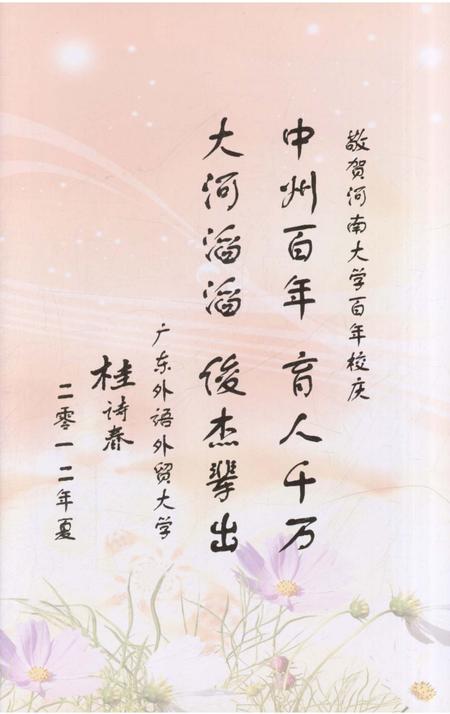 敬贺河南大学百年校庆
中州百年 育人千万
大河滔滔 俊杰辈出
广东外语外贸大学
桂诗春
二零一二年夏